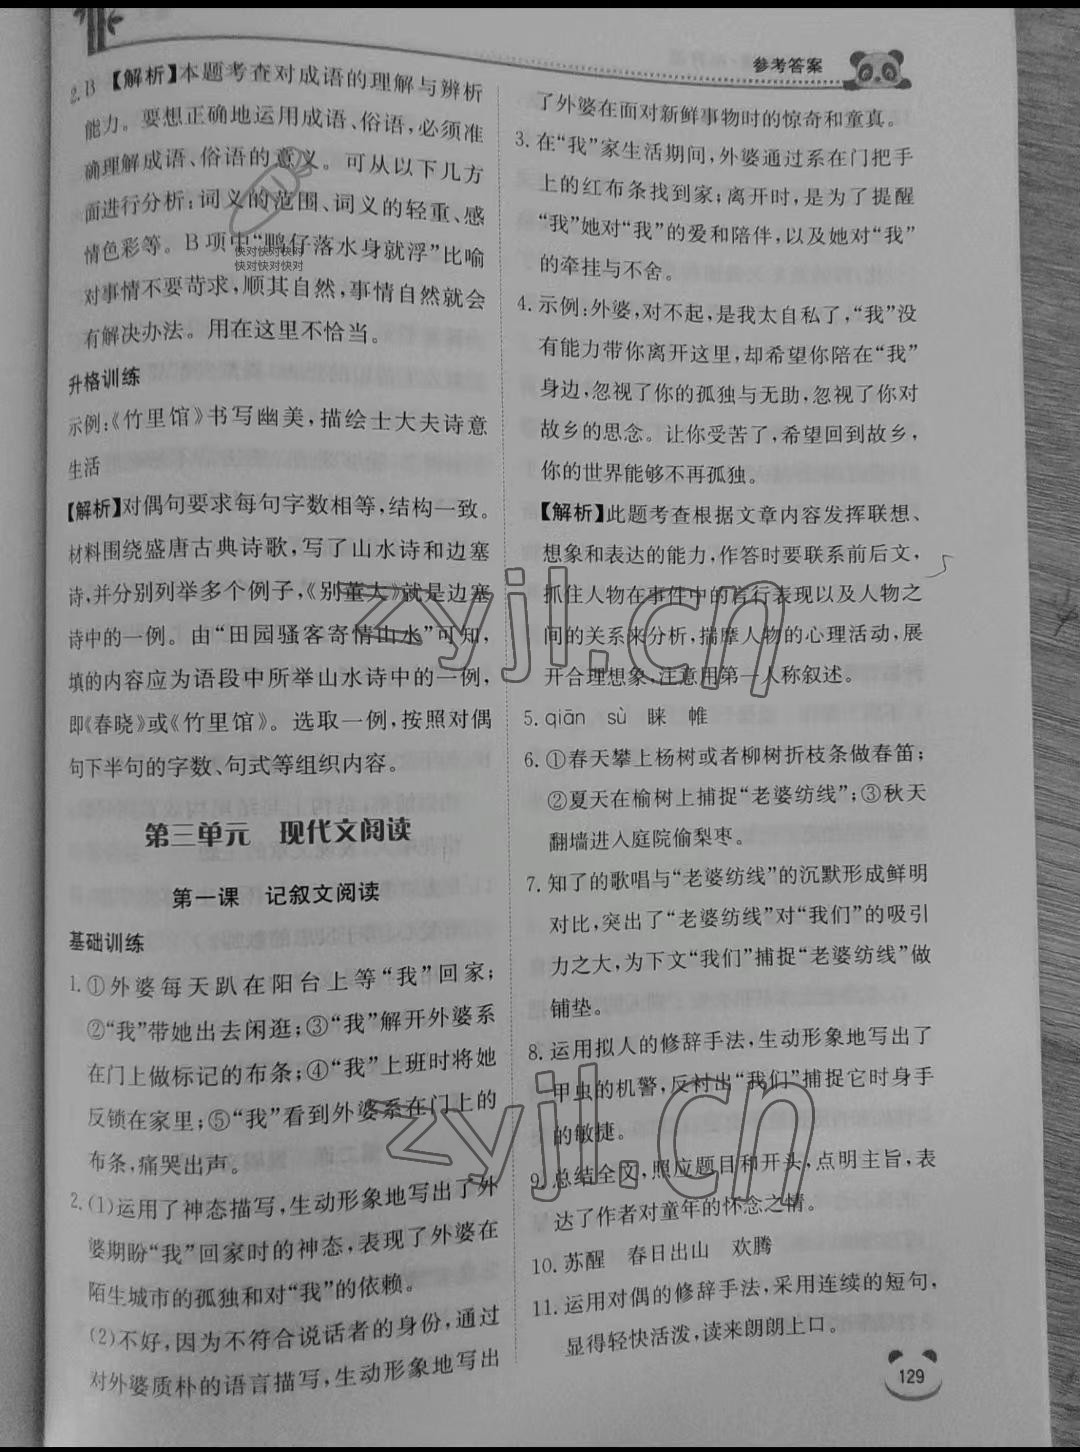 参考答案
2. B 【解析】本题考查对成语的理解与辨析
能力。要想正确地运用成语、俗语,必须准
确理解成语、俗语的意义。可从以下几方
面进行分析:词义的范围、词义的轻重、感
情色彩等。B项中“鸭仔落水身就浮”比喻
对事情不要苛求,顺其自然,事情自然就会
有解决办法。用在这里不恰当。
升格训练
示例:《竹里馆》书写幽美,描绘士大夫诗意
生活
【解析】对偶句要求每句字数相等,结构一致。
材料围绕盛唐古典诗歌,写了山水诗和边塞
诗,并分别列举多个例子,《别董大》就是边塞
诗中的一例。由“田园骚客寄情山水”可知,
填的内容应为语段中所举山水诗中的一例,
即《春晓》或《竹里馆》。选取一例,按照对偶
句下半句的字数、句式等组织内容。
第三单元 现代文阅读
第一课 记叙文阅读
基础训练
1. ①外婆每天趴在阳台上等“我”回家;
②“我”带她出去闲逛;③“我”解开外婆系
在门上做标记的布条;④“我”上班时将她
反锁在家里;⑤“我”看到外婆系在门上的
布条,痛哭出声。
2. (1)运用了神态描写,生动形象地写出了外
婆期盼“我”回家时的神态,表现了外婆在
陌生城市的孤独和对“我”的依赖。
(2)不好,因为不符合说话者的身份,通过
对外婆质朴的语言描写,生动形象地写出
了外婆在面对新鲜事物时的惊奇和童真。
3. 在“我”家生活期间,外婆通过系在门把手
上的红布条找到家;离开时,是为了提醒
“我”她对“我”的爱和陪伴,以及她对“我”
的牵挂与不舍。
4. 示例:外婆,对不起,是我太自私了,“我”没
有能力带你离开这里,却希望你陪在“我”
身边,忽视了你的孤独与无助,忽视了你对
故乡的思念。让你受苦了,希望回到故乡,
你的世界能够不再孤独。
【解析】此题考查根据文章内容发挥联想、
想象和表达的能力,作答时要联系前后文,
抓住人物在事件中的言行表现以及人物之
间的关系来分析,揣摩人物的心理活动,展
开合理想象,注意用第一人称叙述。
5. qiān sù 睐 帷
6. ①春天攀上杨树或者柳树折枝条做春笛;
②夏天在榆树上捕捉“老婆纺线”;③秋天
翻墙进入庭院偷梨枣。
7. 知了的歌唱与“老婆纺线”的沉默形成鲜明
对比,突出了“老婆纺线”对“我们”的吸引
力之大,为下文“我们”捕捉“老婆纺线”做
铺垫。
8. 运用拟人的修辞手法,生动形象地写出了
甲虫的机警,反衬出“我们”捕捉它时身手
的敏捷。
9. 总结全文,照应题目和开头,点明主旨,表
达了作者对童年的怀念之情。
10. 苏醒 春日出山 欢腾
11. 运用对偶的修辞手法,采用连续的短句,
显得轻快活泼,读来朗朗上口。
129
快对快对快对
快对快对快对
zyjl.cn
zyjl.cn